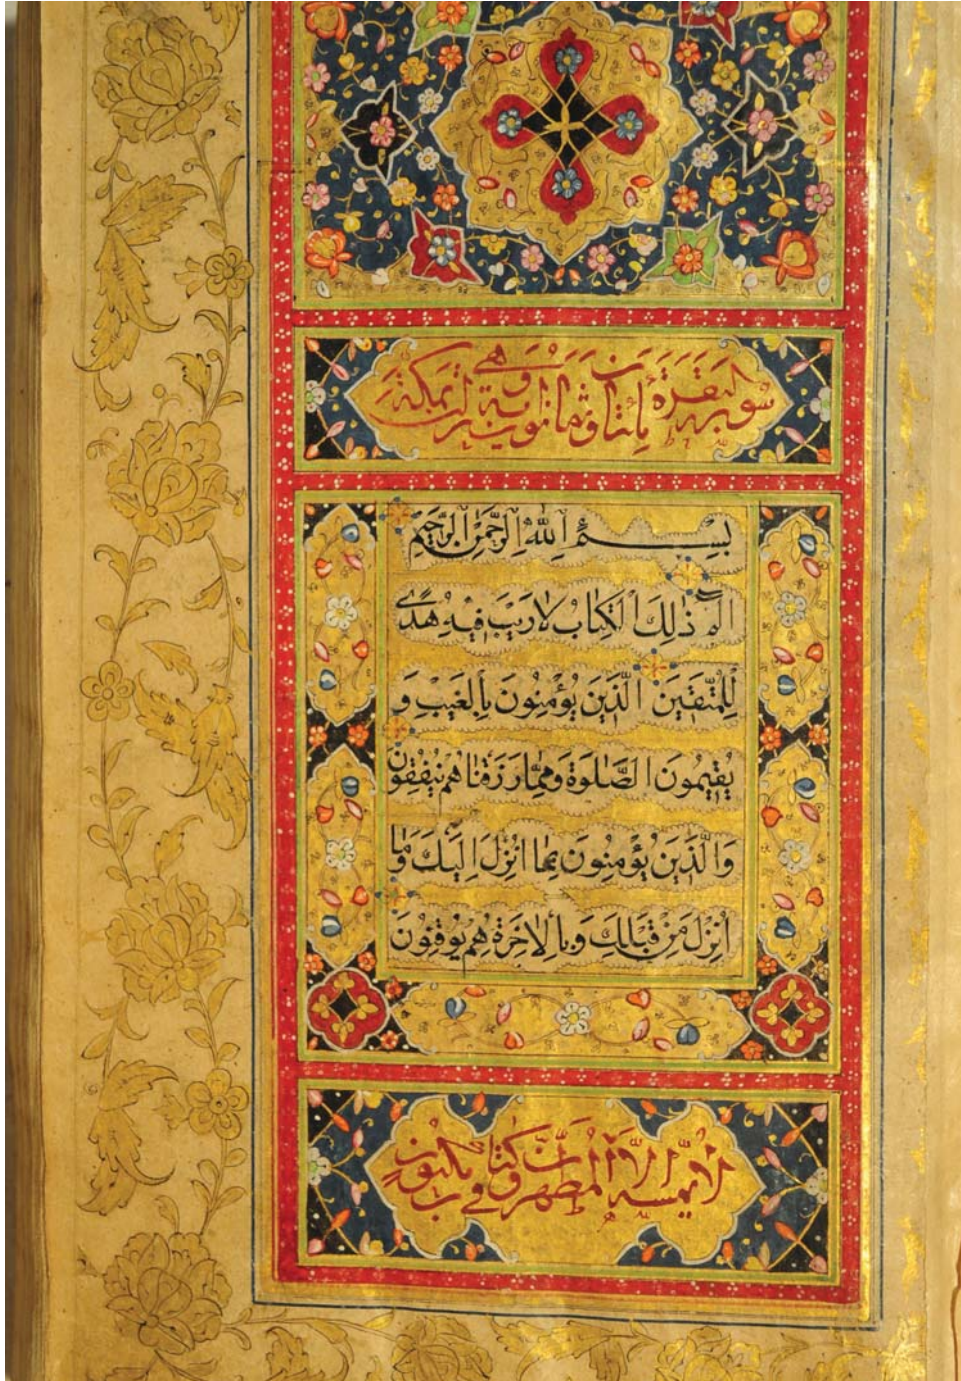 سُورَة البَقَرَة مِأَتَان وَثَمَانُون وَهِيَ بمَكّة
بِسْمِ اللهِ الرَّحْمٰنِ الرَّحِيمِ
الٓمٓ ذٰلِكَ الْكِتَابُ لَا رَيْبَ فِيهِ هُدًى
لِلْمُتَّقِينَ الَّذِينَ يُؤْمِنُونَ بِالْغَيْبِ وَ
يُقِيمُونَ الصَّلٰوةَ وَمِمَّا رَزَقْنَاهُمْ يُنْفِقُونَ
وَالَّذِينَ يُؤْمِنُونَ بِمَا اُنْزِلَ اِلَيْكَ وَمَا
اُنْزِلَ مِنْ قَبْلِكَ وَبِالْاٰخِرَةِ هُمْ يُوقِنُونَ
لَا يَمَسُّهُ اِلَّا الْمُطَهَّرُونَ فِي كِتَابٍ مَكْنُونٍ